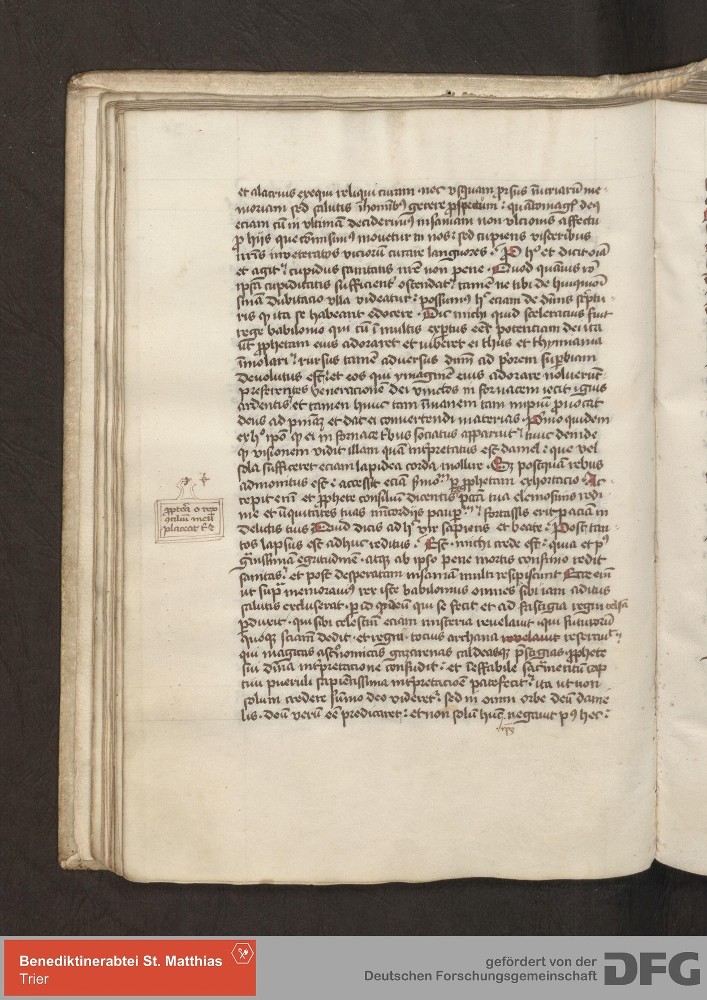 et alacrius exequi reliqui curam · nec usquam prsus iniuriarū me-
moriam sed salutis i hominibꝰ gerere prospectum : quātomagꝭ deꝰ
eciam cū in ultimam deciderimꝰ insaniam non ulcionis affectu
ꝓ hijs que cōmisimꝰ movetur in nos : sed cupiens visceribus
nr̄is inveteratos viciorum curare languores · P hͦ et dicit oīa
et agit : cupidus sanitatis nr̄e non pene · Quod quāvis
ipsā cupiditatis sufficienter ostendat : tamē ne tibi de huiuōi
snīa dubitacio ulla videatur : possumꝰ hͦ eciam de divinis scriptu-
ris ꝙ ita se habeant edocere · Dic michi quid sceleracius fuit
rege babilonio qui cū ī multis exptus eēt potenciam dei ita
ut ꝓphetam eius adoraret et iuberet ei thus et thymiama
īmolari : rursus tamē adversus dm̄ ad priorem supbiam
devolutus est : et eos qui ymaginē eius adorare noluerūt
preferentes veneracionem dei vinctos in fornacem iecit ignis
ardentis et tamen hunc tam īmanem tam impium ꝓvocat
deus ad pniam et dat ei convertendi materias · Primo quidem
ex hͦ ipso ꝙ ei in fornace tribus sociatus apparuit : huic deinde
ꝙ visionem vidit illam quā interpretatus est daniel : que vel
sola sufficeret eciam lapidea corda mollire · Et postquā rebus
admonitus est : accessit eciam sermonis per ꝓphetam exhortacio · Ac-
cepit enim et ꝓphete consilium dicentis peccata tua elemosinis redi-
me et iniquitates tuas misericordijs pauperum : fortassis erit paciam in
delictis tuis Quid dicis ad hͦ vir sapiens et beate : Post tan-
tos lapsus est adhuc reditus : Est · michi crede est : quia et pꝰ
gravissimā egritudinem · atqꝫ ab ipso pene mortis confinio redit
sanitas : et post desperatam insaniam multi resipiscunt Ecce enim
ut supra memoravimꝰ rex iste babilonius omnes sibi iam aditus
salutis excluserat · per id quidem qui se fecit et ad fastigia regni celsa
pduxit · qui sibi celestium eciam misteria revelavit · qui futurorū
quoqꝫ sciam dedit · et regni · tocius archana revelavit reservit :
qui magicas astronomicas gazarenas caldeasqꝫ prestigias ꝓphete
sui divina interpretacione confudit : et ineffabile sacramentum cap-
tivi pueruli sapientissima interpretacioē patefecit : ita ut non
solum credere summo deo videret : sed in omni orbe deū danie-
lis · deum verū eē predicaret : et non solum hunc negavit pꝰ hec :
ꝓpterea o rex
consilium meū
placeat tibi
Benediktinerabtei St. Matthias
Trier
gefördert von der
Deutschen Forschungsgemeinschaft
DFG